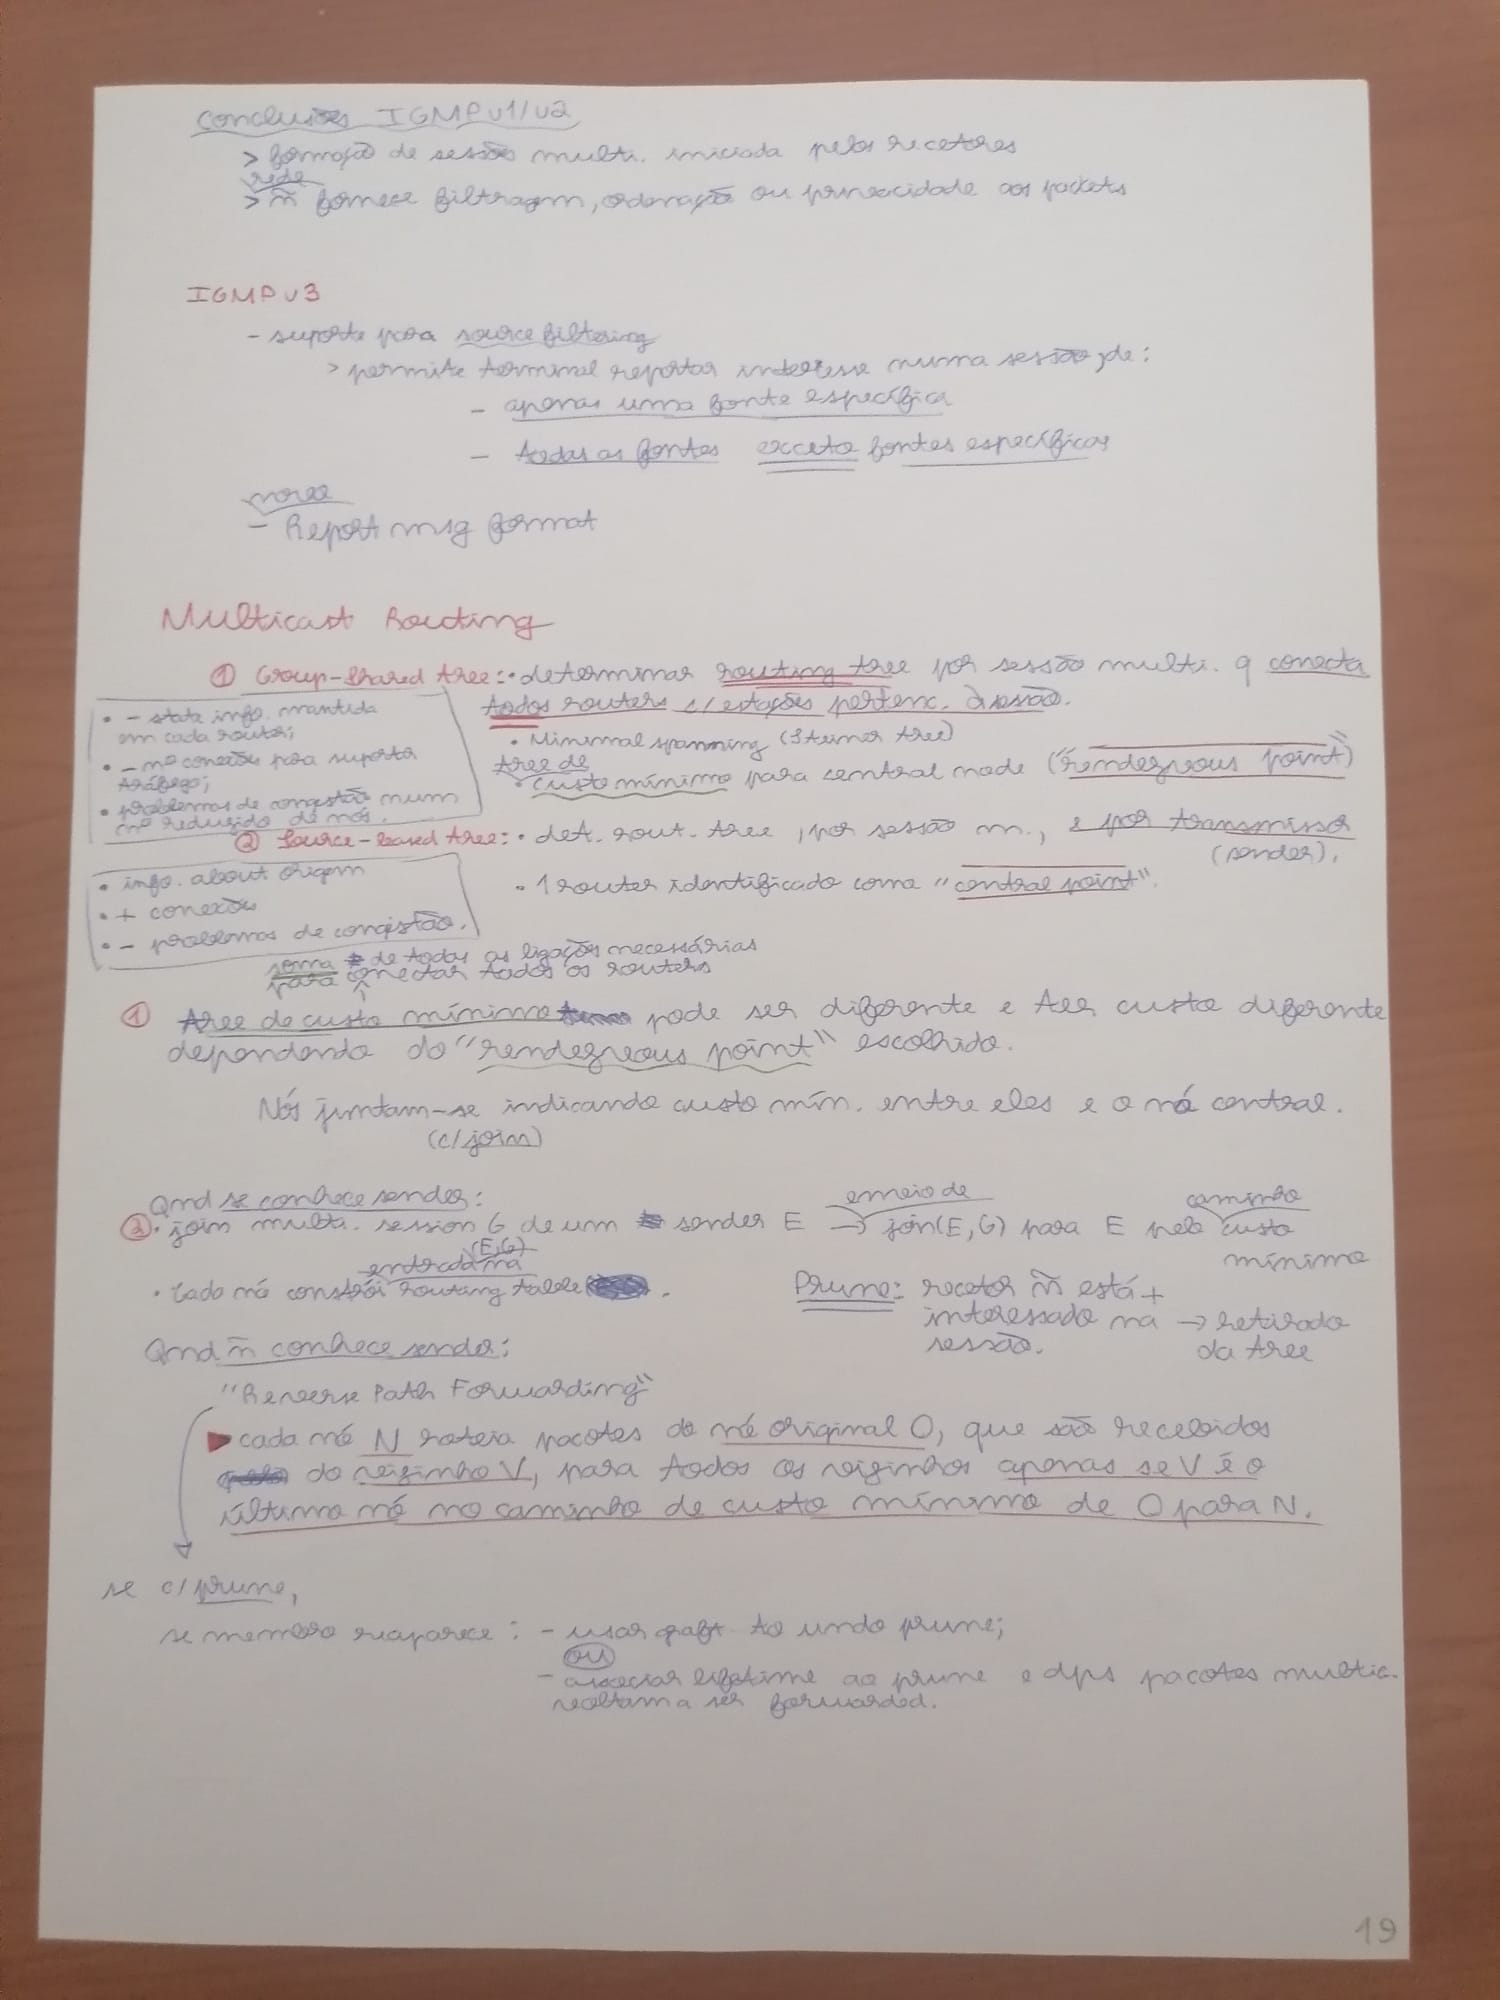 Conclusões IGMPv1/v2
> formação de sessão multi. iniciada pelos recetores
rede
> ñ fornece filtragem, ordenação ou privacidade aos packets
IGMP v3
- suporte para source filtering
> permite terminal reportar interesse numa sessão, de:
- apenas uma fonte específica
- todas as fontes exceto fontes específicas
novo
- Report msg format
Multicast Routing
① Group-Shared tree: • determinar routing tree por sessão multi. q conecta
todos routers c/ estações pertenc. à sessão.
• Minimal spanning (Steiner tree)
tree de
• custo mínimo para central node ("rendezveous point")
• - state info. mantida
em cada router;
• - nº conexões para suportar
tráfego;
• problemas de congestão num
nº reduzido de nós.
② Source-based tree: • det. rout. tree, por sessão m., e por transmissor
(sender).
• 1 router identificado como "central point".
• info. about origem
• + conexões
• - problemas de congestão.
soma de todas as ligações necessárias
para conectar todos os routers
① Tree de custo mínimo pode ser diferente e ter custo diferente
dependendo do "rendezveous point" escolhido.
Nós juntam-se indicando custo mín. entre eles e o nó central.
(c/ join)
Qnd se conhece sender:
② • join multi. session G de um sender E → envio de join(E,G) para E pelo caminho custo
mínimo
• Cada nó constrói entrada na (E,G) routing table.
Prune: recetor ñ está +
interessado na → retirado
sessão. da tree
Qnd ñ conhece sender:
"Reverse Path Forwarding"
▶ cada nó N roteia pacotes do nó original O, que são recebidos
do vizinho V, para todos os vizinhos apenas se V é o
último nó no caminho de custo mínimo de O para N.
se c/ prune,
se membro reaparece: - usar graft to undo prune;
ou
- associar lifetime ao prune e dps pacotes multic.
voltam a ser forwarded.
19